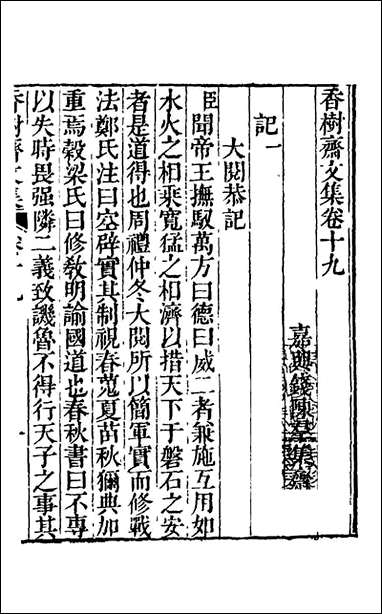 香樹齋文集卷十九
嘉興錢陳羣集齋
記一
大閱恭記
臣聞帝王撫馭萬方曰德曰威二者兼施互用如
水火之相乘寬猛之相濟以措天下于磐石之安
者是道得也周禮仲冬大閱所以簡軍實而修戰
法鄭氏注曰空辟實其制視春蒐夏苗秋獮典加
重焉穀梁氏曰修敎明諭國道也春秋書曰不專
以失時畏强隣二義致譏魯不得行天子之事其
香樹齋文集
卷十九
一